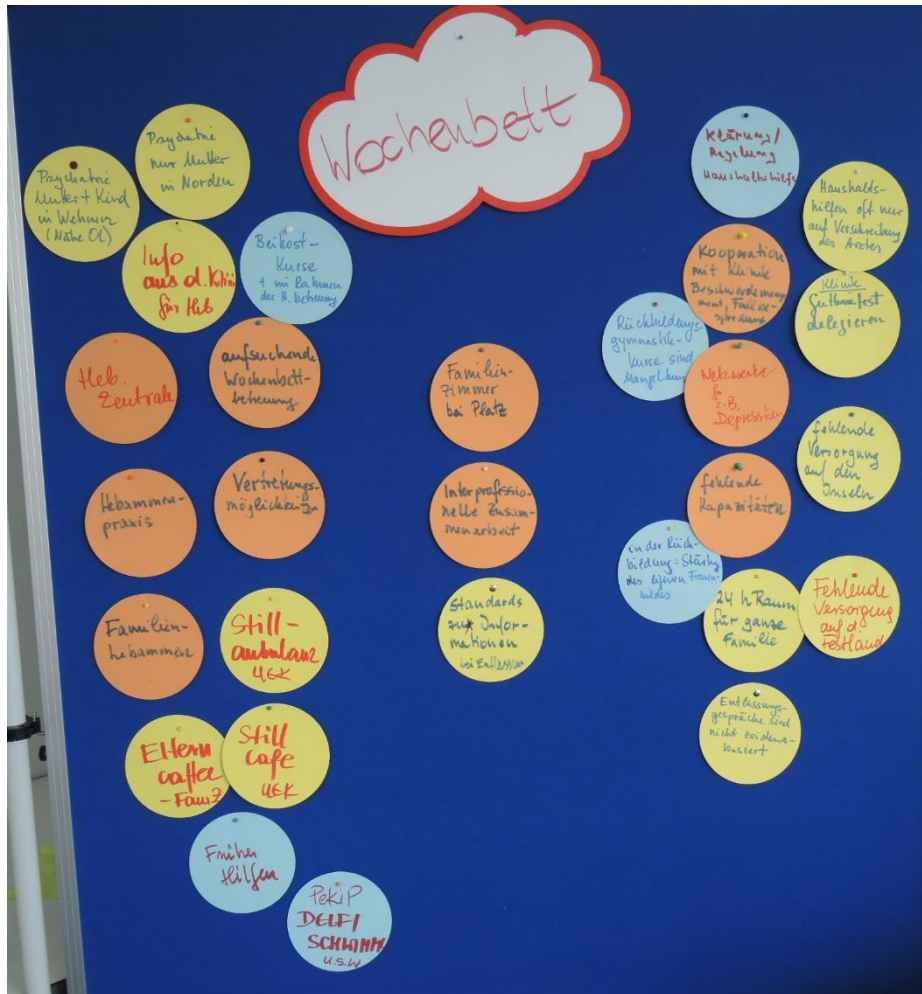 Wochenbett
Psychatrie
Mutter + Kind
in Wehnen
(Nähe OL)
Psychatrie
nur Mutter
in Norden
Info
aus d. Klini
für Heb
Beikost-
Kurse
+ im Rahmen
der H. betreuung
Heb.
Zentrale
aufsuchende
Wochenbett-
betreuung
Hebammen-
praxis
Vertretungs-
möglichkeiten
Familien-
hebammen
Still-
ambulanz
UEK
Eltern
caffee
- FamZ
Still
Cafe
UEK
Frühe
Hilfen
PeKiP
DELFI
SCHWIMM
u.s.w
Familien-
zimmer
bei Platz
Interprofessio-
nelle Zusam-
menarbeit
Standards
zur Infor-
mationen
bei Entlassung
Klärung/
Regelung
Haushaltshilfe
Haushalds-
hilfen oft nur
auf Verschreibung
des Arztes
Kooperation
mit Klinik
Beschwerdemanag-
ment, Fallbe-
sprechung
Klinik
Guthrietest
delegieren
Rückbildungs-
gymnastik-
kurse sind
Netzwerke
für
z.B.
Depression
fehlende
Versorgung
auf den
Inseln
fehlende
Kapazitäten
in der Rück-
bildung: Stärkg
des eigenen Frauen-
bildes
24 h Raum
für ganze
Familie
Fehlende
Versorgung
auf d.
Festland
Entlassungs-
gespräche sind
nicht evidenz-
basiert